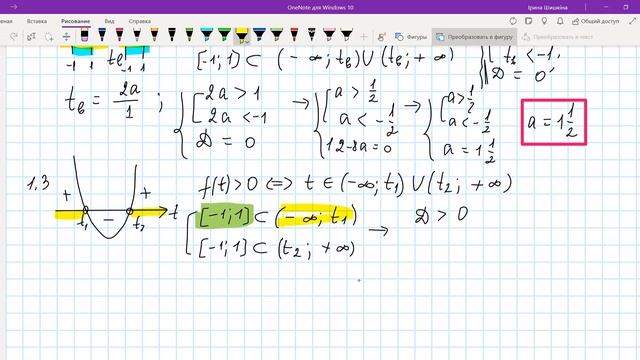 OneNote для Windows 10
Ірина Шишкіна
Главная Вставка Рисование Вид Справка
Общий доступ
Фигуры Преобразовать в фигуру Преобразовать в
-1 1 tв -1 1
[-1; 1] ⊂ (-∞; tв) ∪ (tв; +∞)
tв < -1,
D = 0
tв = 2a/1 ;
2a > 1
2a < -1
D = 0
→ a > 1/2
a < -1/2
12-8a=0
→ a > 1/2
a < -1/2
a = 1 1/2
a = 1 1/2
1,3
+ - +
t₁ t₂ t
f(t) > 0 <=> t ∈ (-∞; t₁) ∪ (t₂; +∞)
[-1; 1] ⊂ (-∞; t₁)
[-1; 1] ⊂ (t₂; +∞)
→ D > 0